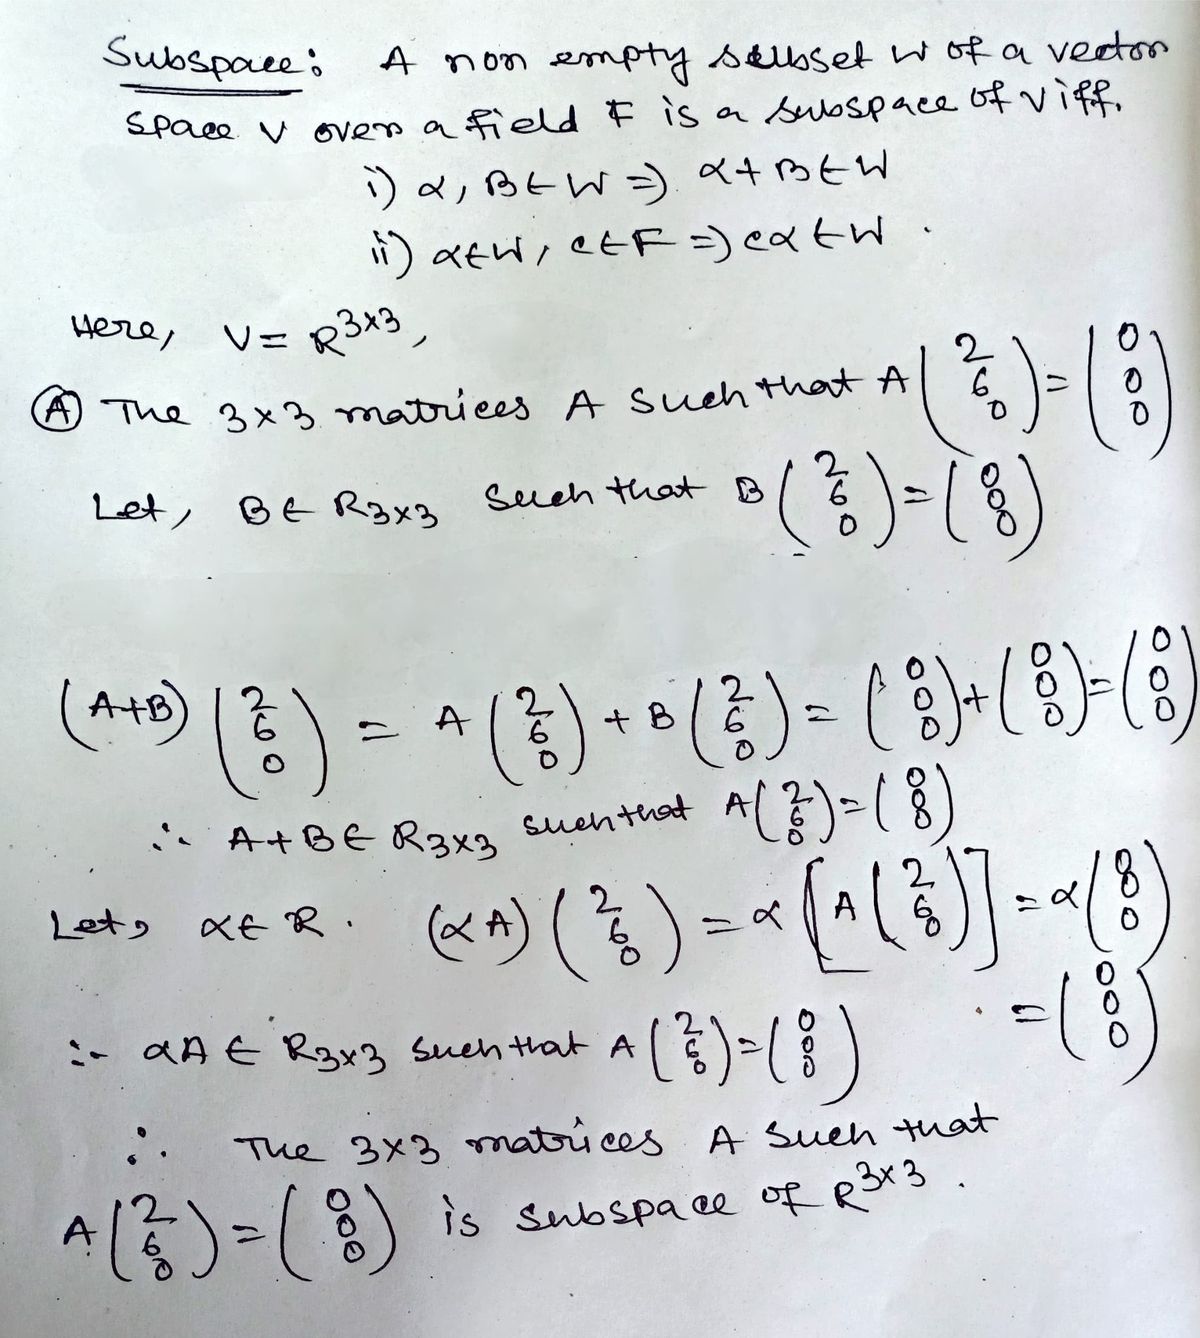 Subspace: A non empty subset W of a vector
space V over a field F is a subspace of V iff.
i) α, B ∈ W => α + B ∈ W
ii) α ∈ W, c ∈ F => cα ∈ W.
Here, V = R^{3×3},
Ⓐ The 3×3 matrices A such that A (2 6 0) = (0 0 0)
Let, B ∈ R3×3 such that B (2 6 0) = (0 0 0)
(A+B) (2 6 0) = A (2 6 0) + B (2 6 0) = (0 0 0) + (0 0 0) = (0 0 0)
∴ A+B ∈ R3×3 such that A (2 6 0) = (0 0 0)
Let, α ∈ R. (αA) (2 6 0) = α [A (2 6 0)] = α (0 0 0)
= (0 0 0)
:- αA ∈ R3×3 such that A (2 6 0) = (0 0 0)
∴ The 3×3 matrices A such that
A (2 6 0) = (0 0 0) is subspace of R^{3×3}.